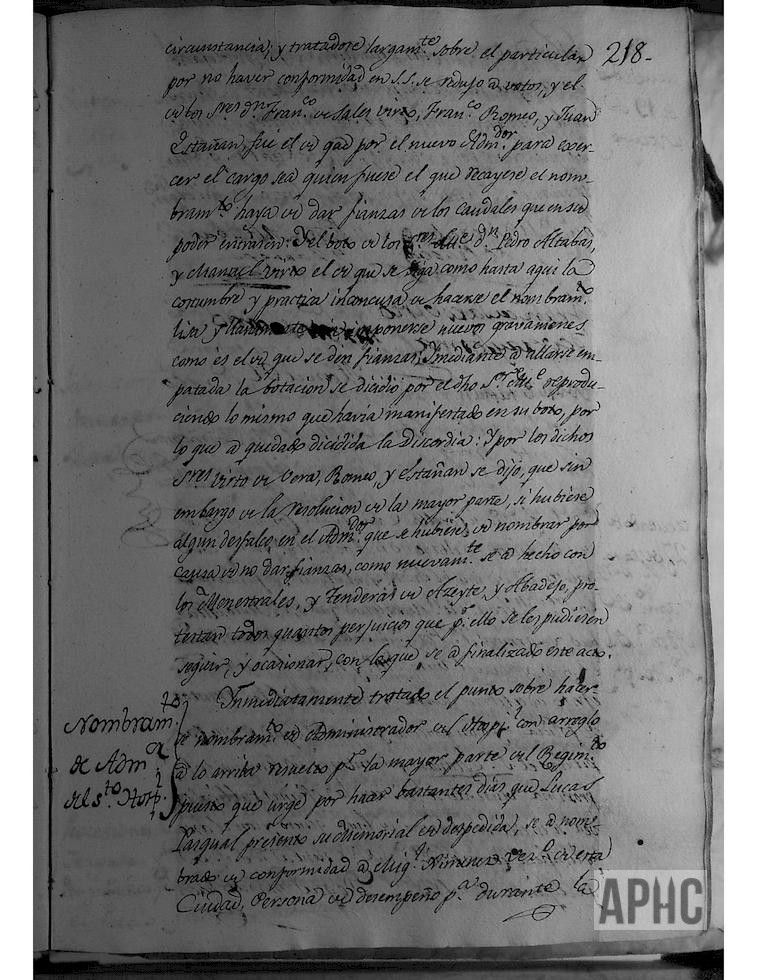 218-
circunstancia; y tratadose largam.te sobre el particular
por no haver conformidad en S.S. se redujo a votos, y el
de los S.res d.n Fran.co de Sales Virto, Fran.co Romeo, y Juan
Estañan, fue el de que por el nuevo Adm.dor para exer-
cer el cargo sea quien fuese el que recayese el nom-
bram.to haya de dar fianzas de los caudales que en su
poder entrasen: Y el boto de los S.res Alc.e d.n Pedro Altabas,
y Manuel Virto el de que se siga como hasta aqui la
costumbre y practica inconcusa de hacerse el nombram.to
lisa y llanam imponerse nuevos gravamenes
como es el de que se den fianzas. Imediante a allarse em-
patada la botacion se dicidio por el dho S.r Alc.e reprodu-
ciendo lo mismo que havia manifestado en su boto, por
lo que a quedado dicidida la Discordia: Y por los dichos
S.res Virto de Vera, Romeo, y Estañan se dijo, que sin
embargo de la resolucion de la mayor parte, si hubiese
algun desfalco en el Adm.dor que se hubiese de nombrar por
causa de no dar fianzas, como nuevam.te se a hecho con
los Menestrales, y Tenderas de Azeyte, y Abadejo, pro-
testan todos quantos perjuicios que p.r ello se les pudiesen
seguir, y ocasionar, con lo que se a finalizado este acto.
Nombram.to
de Adm.or
del S.to Hosp.l
Inmediatamente tratado el punto sobre hacer-
se nombram.to de Administrador del Hospi.l con arreglo
a lo arriba resuelto p.r la mayor parte del Regim.to
puesto que urge por hacer bastantes dias que Lucas
Pasqual presento su Memorial de despedida, se a nom-
brado de conformidad a Mig.l Ve.o de esta
Ciudad, Persona de desempeño p.a durante la
APHC